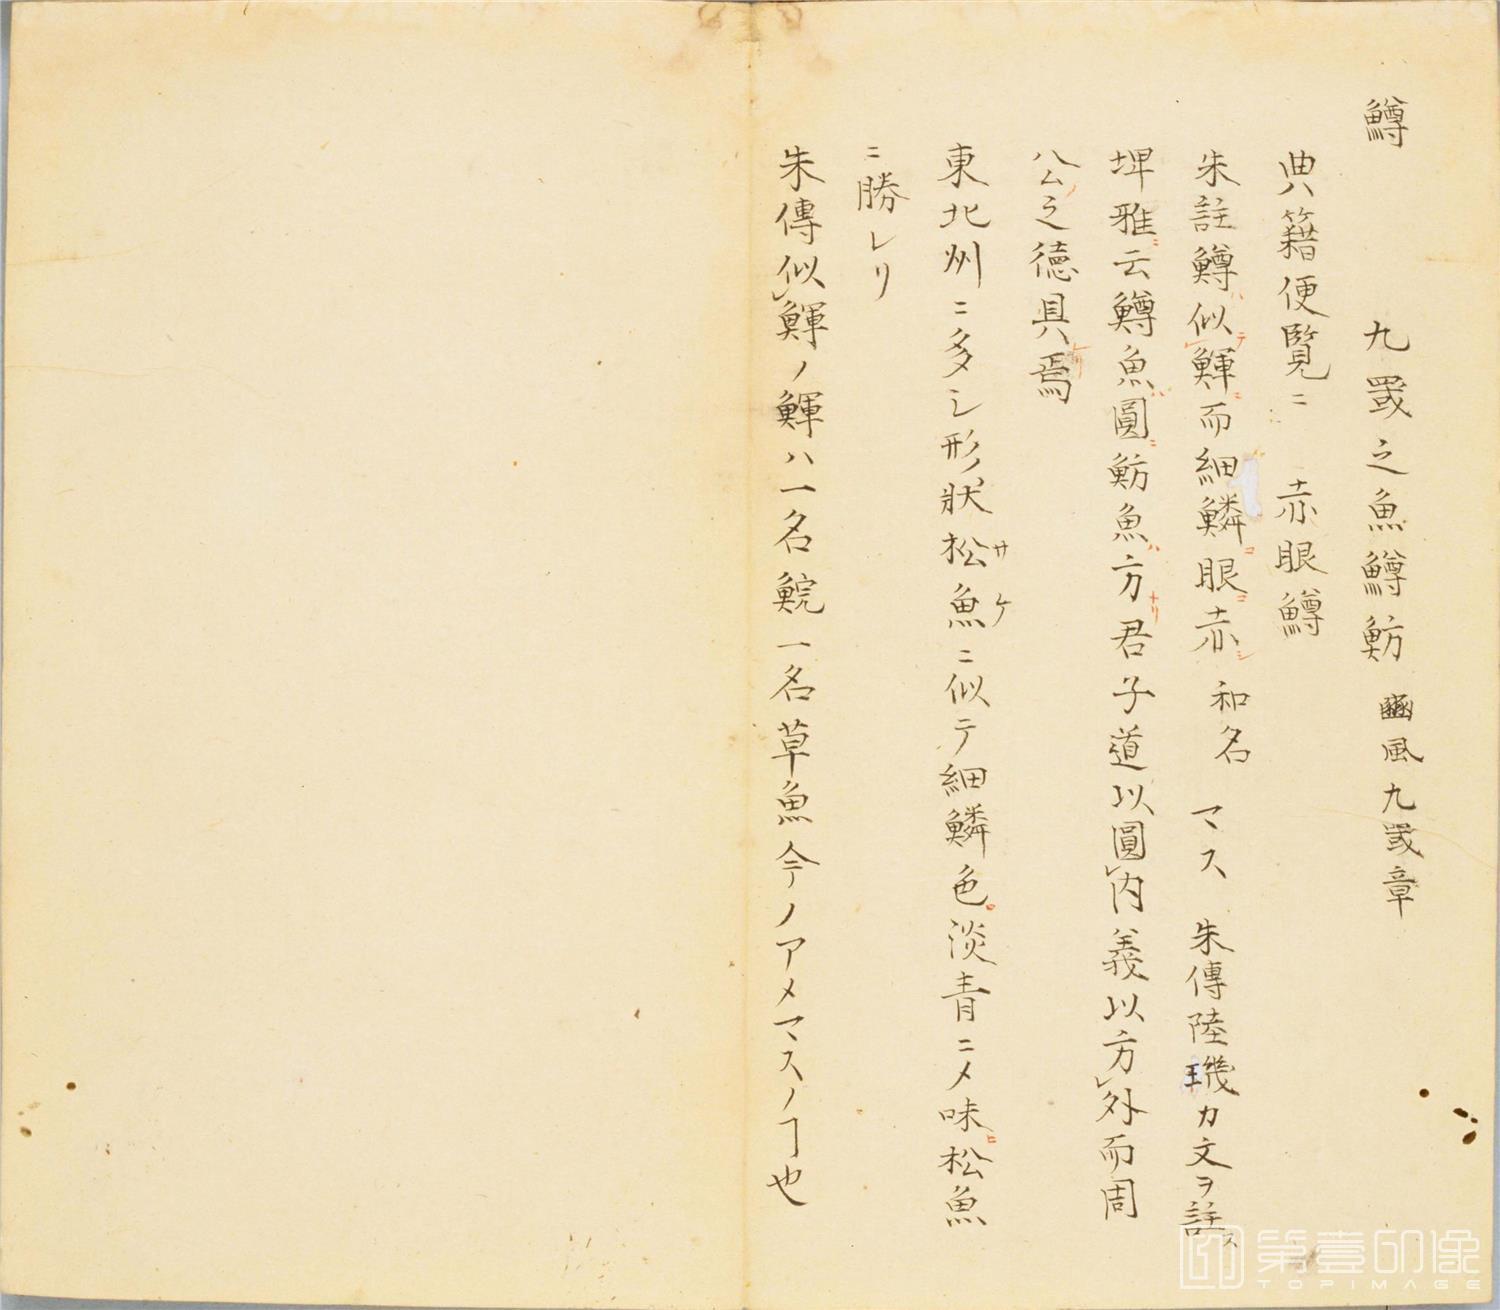 鱒　九罭之魚鱒魴　豳風九罭章
典籍便覧ニ　赤眼鱒
朱註鱒ハ似テ鯶ニ而細鱗ニ眼赤シ　和名　マス　朱傳陸璣カ文ヲ註ス
埤雅ニ云鱒魚ハ圓ニ魴魚ハ方ナリ君子道以圓レ内義以方レ外而周
公ノ之德具レリ焉
東北州ニ多シ形狀松魚サケニ似テ細鱗色淡青ニメ味松魚
ニ勝レリ
朱傳似レ鯶ノ鯶ハ一名鯇一名草魚今ノアメマスノヿ也
第壹印像
TOPIMAGE